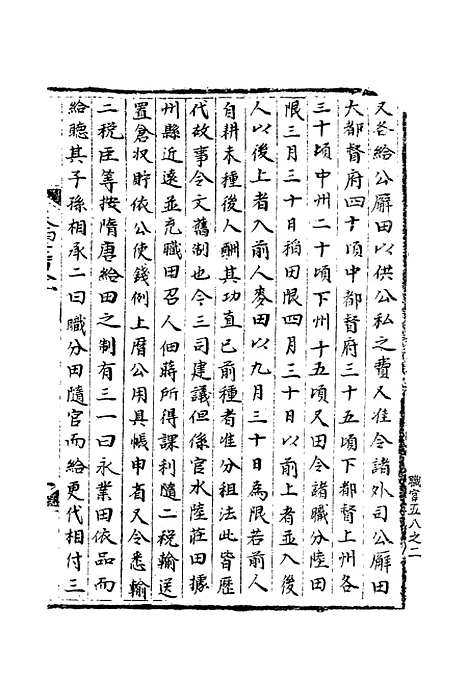 又各給公廨田以供公私之費又准令諸外司公廨田
大都督府四十頃中都督府三十五頃下都督上州各
三十頃中州二十頃下州十五頃又田令諸職分陸田
限三月三十日稻田限四月三十日以前上者並入後
人以後上者入前人麥田以九月三十日為限若前人
自耕未種後人酬其功直已前種者准分租法此皆歷
代故事令文舊制也今三司建議但係官水陸莊田據
州縣近遠並充職田召人佃蒔所得課利隨二稅輸送
置倉収貯依公使錢例上曆公用具帳申省又令悉輸
二税臣等按隋唐給田之制有三一曰永業田依品而
給聽其子孫相承二曰職分田隨官而給更代相付三
職官五八之二